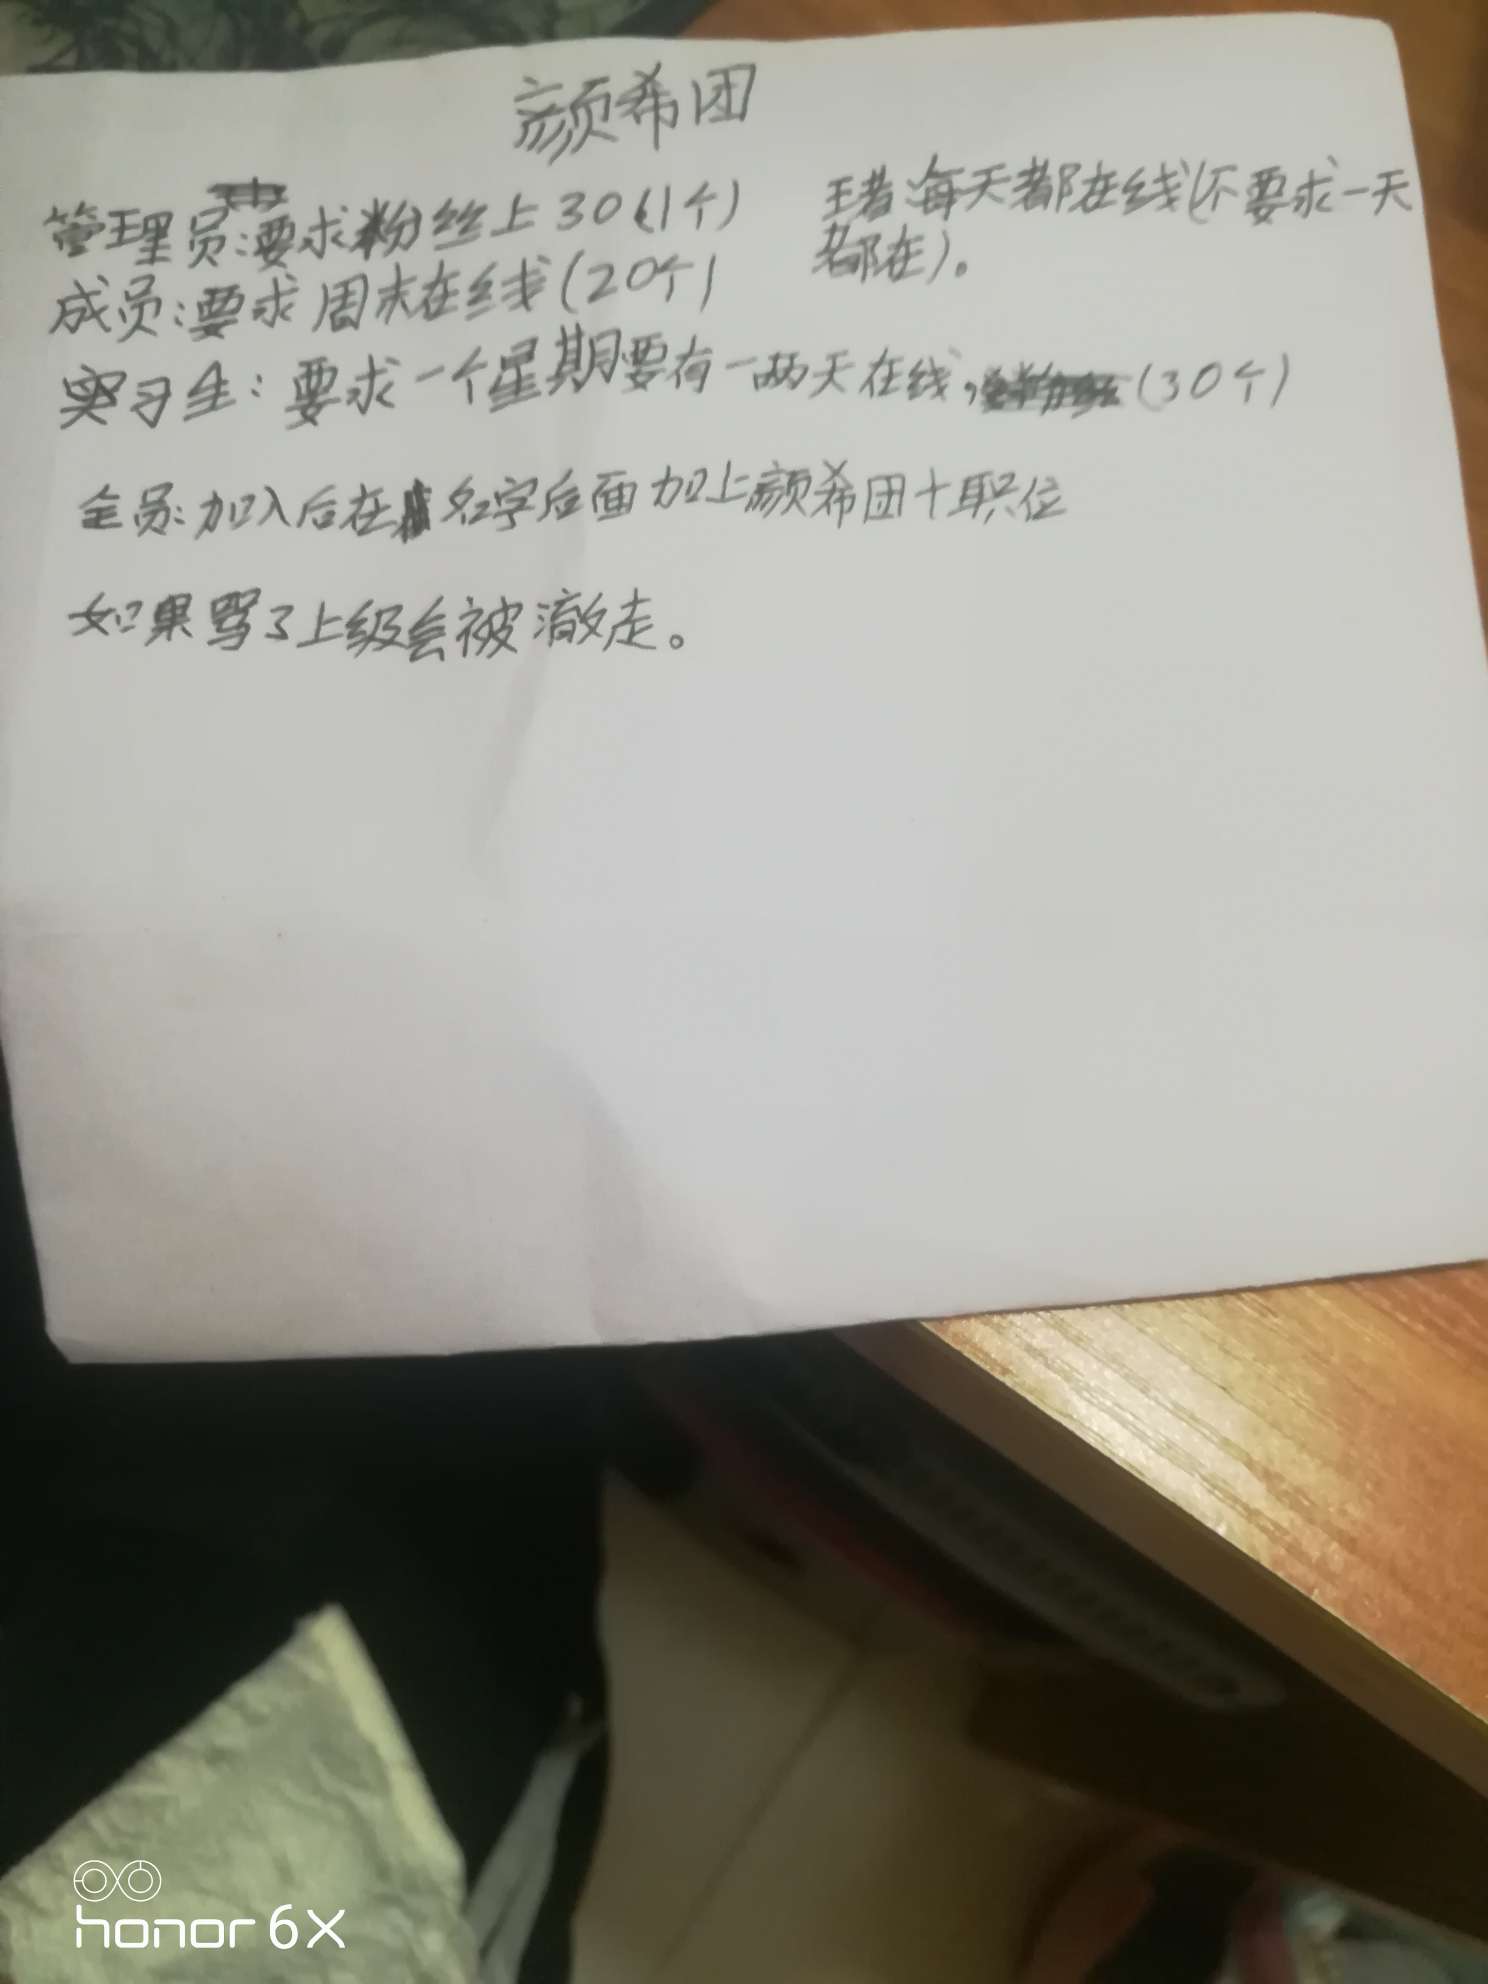 颜希团
管理员:要求粉丝上30(1个)
王者:每天都在线(不要求一天
都在)。
成员:要求周末在线(20个)
实习生:要求一个星期要有一两天在线,(30个)
全员:加入后在名字后面加上颜希团+职位
如果骂了上级会被撤走。
honor 6X